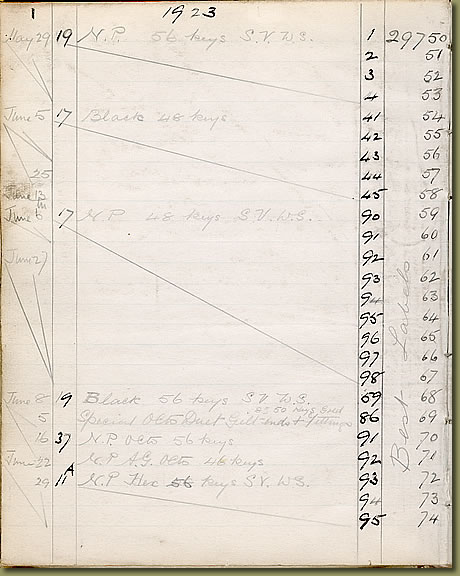 1 1923
May 29 19 N.P. 56 keys S.V. W.S. 1 29750
2 51
3 52
4 53
June 5 17 Black 48 keys 41 54
42 55
43 56
25 44 57
June 13 45 58
June 6 17 N.P. 48 keys S.V. W.S. 90 59
91 60
June 27 92 61
93 62
94 63
95 64
96 65
97 66
98 67
June 8 19 Black 56 keys S.V. W.S. 59 68
5 Special Octo Duet Gilt ends + fittings 86 69
16 37 N.P. Octo 56 keys 91 70
June 22 N.P. A.G. Octo 46 keys 92 71
29 11A N.P. Hex 56 keys S.V. W.S. 93 72
94 73
95 74
Best Labels